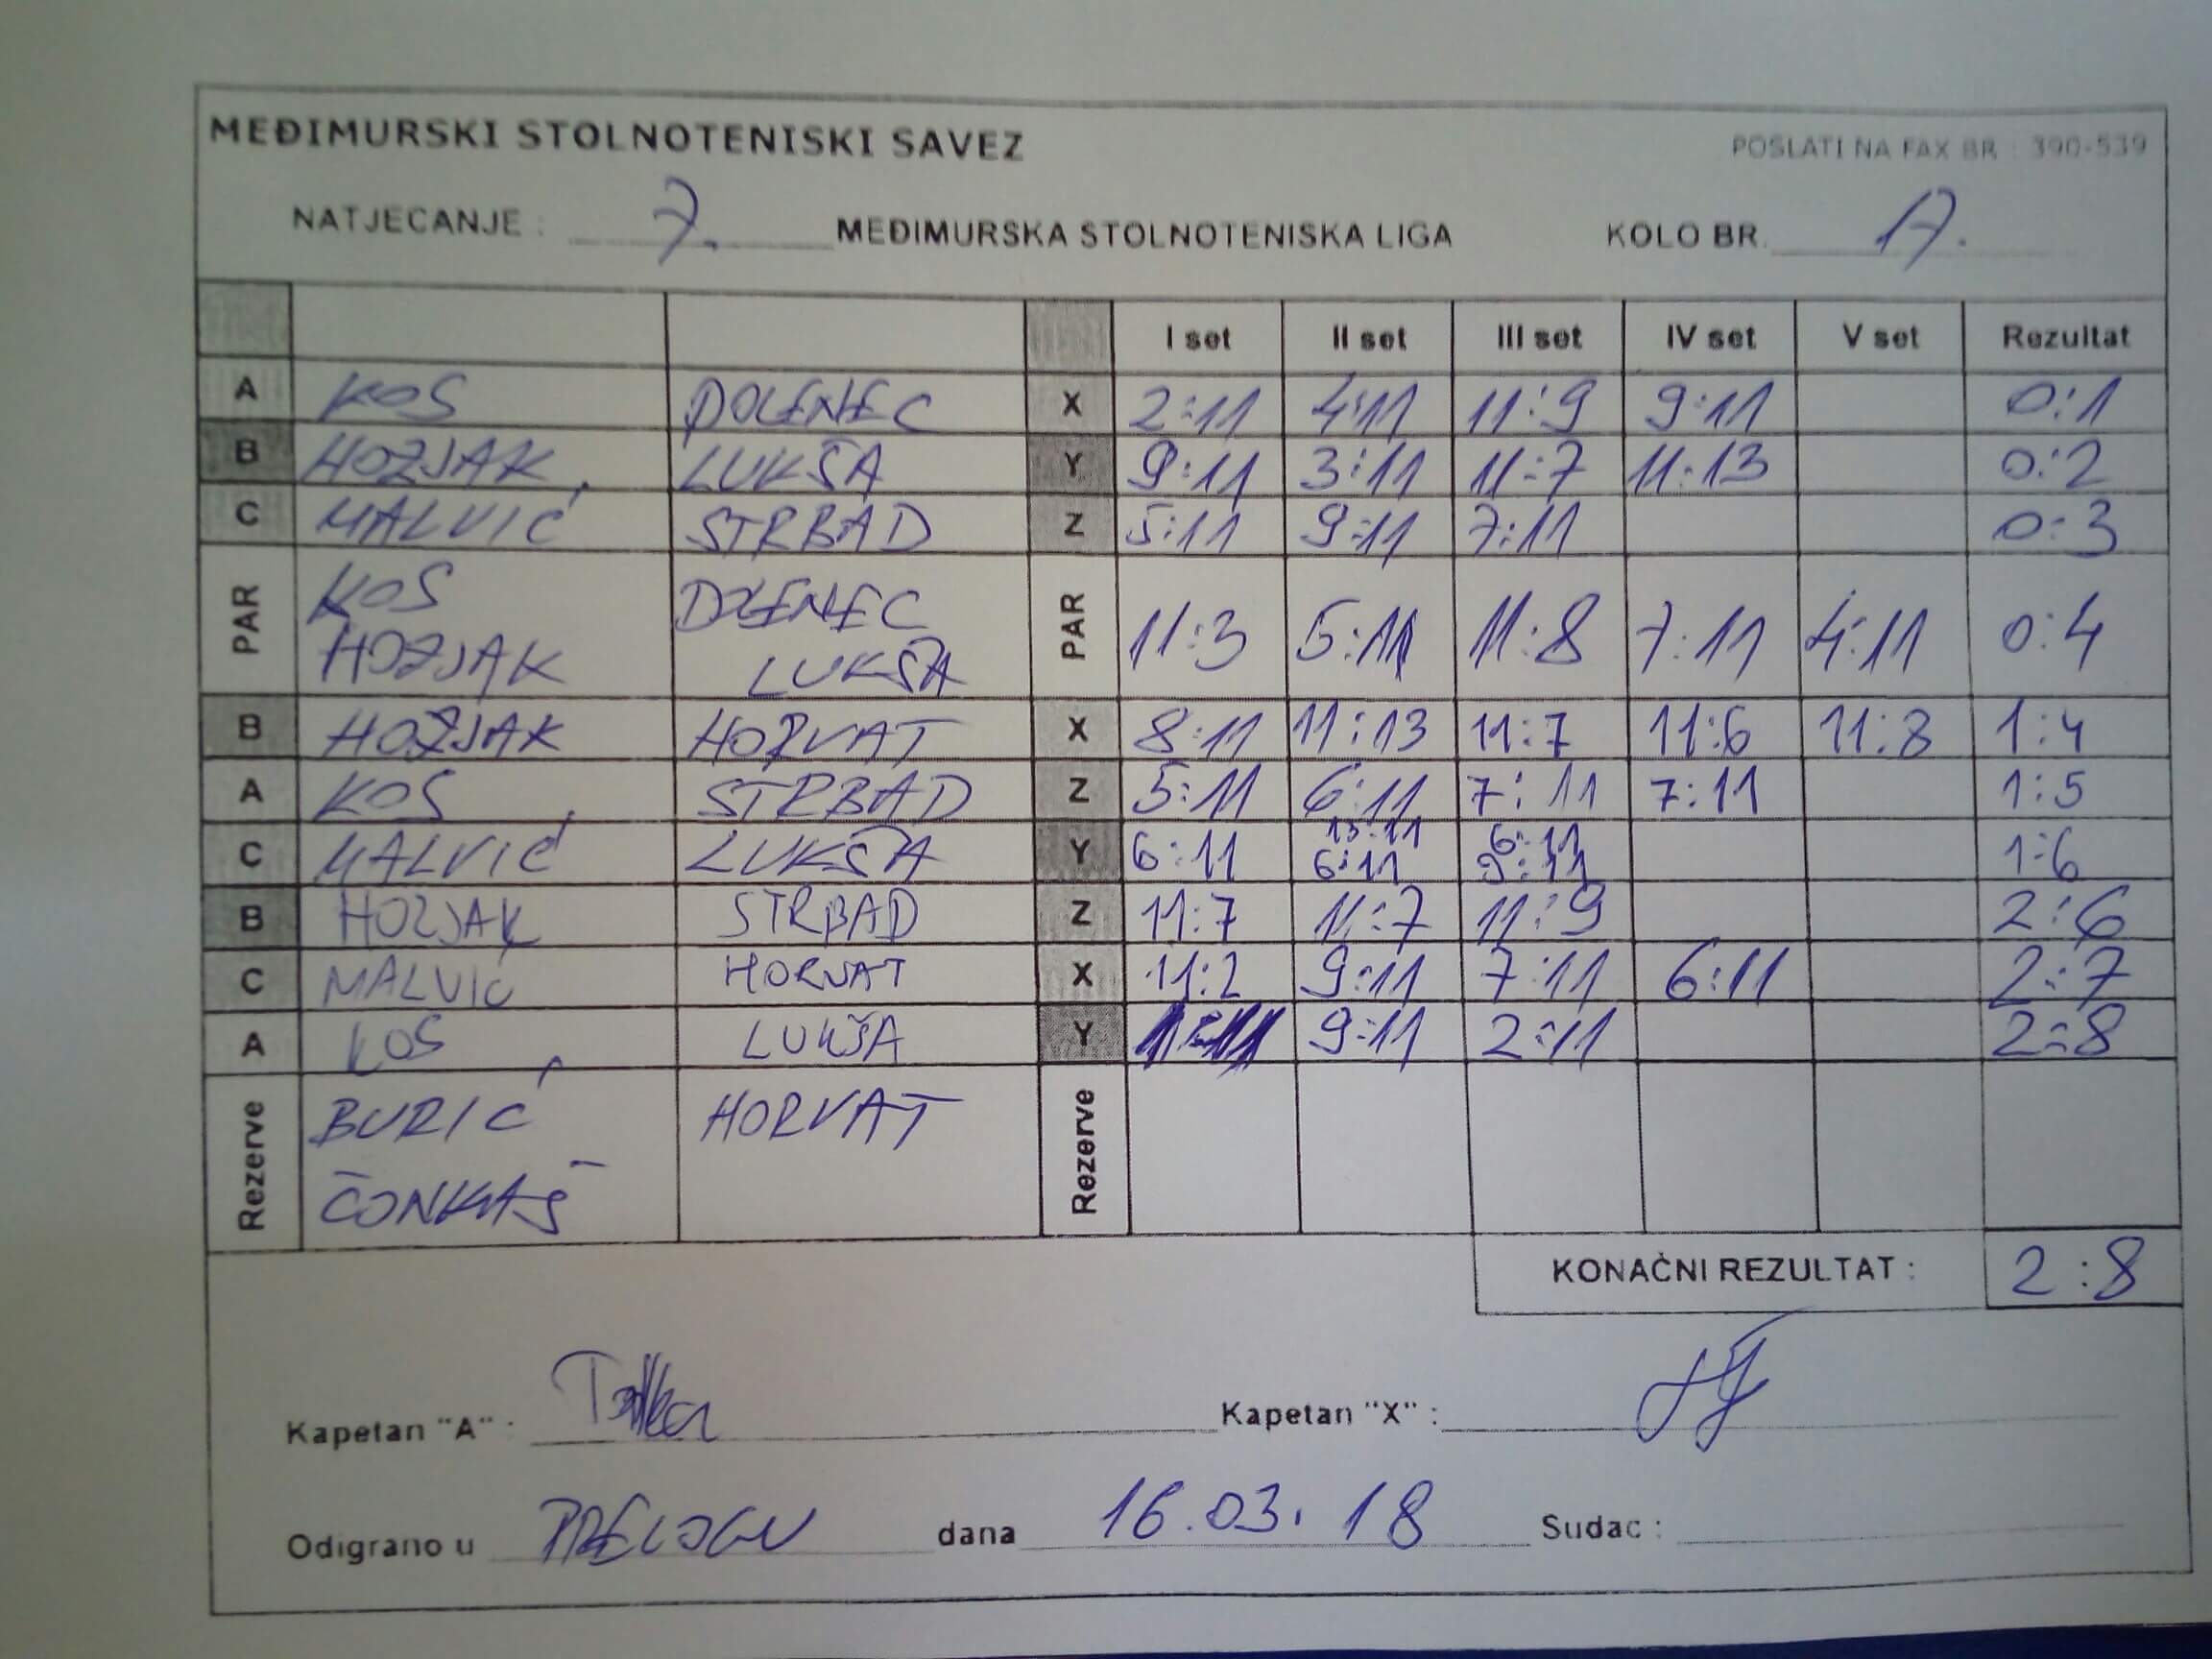 MEĐIMURSKI STOLNOTENISKI SAVEZ POSLATI NA FAX BR : 390-539
NATJECANJE : 7. MEĐIMURSKA STOLNOTENISKA LIGA KOLO BR. 17.
I set II set III set IV set V set Rezultat
A KOS DOLENEC X 2:11 4:11 11:9 9:11 0:1
B HOZJAK LUKŠA Y 9:11 3:11 11:7 11:13 0:2
C MALVIĆ STRBAD Z 5:11 9:11 7:11 0:3
PAR KOS DOLENEC PAR 11:3 5:11 11:8 7:11 4:11 0:4
HOZJAK LUKŠA
B HOZJAK HORVAT X 8:11 11:13 11:7 11:6 11:8 1:4
A KOS STRBAD Z 5:11 6:11 7:11 7:11 1:5
13:11 6:11
C MALVIĆ LUKŠA Y 6:11 6:11 9:11 1:6
B HOZJAK STRBAD Z 11:7 11:7 11:9 2:6
C MALVIĆ HORVAT X 11:2 9:11 7:11 6:11 2:7
A KOS LUKŠA Y 9:11 2:11 2:8
Rezerve BURIĆ HORVAT Rezerve
ČONKAŠ
KONAČNI REZULTAT : 2:8
Kapetan "A" : Kapetan "X" :
Odigrano u PRELOGU dana 16.03.18 Sudac :